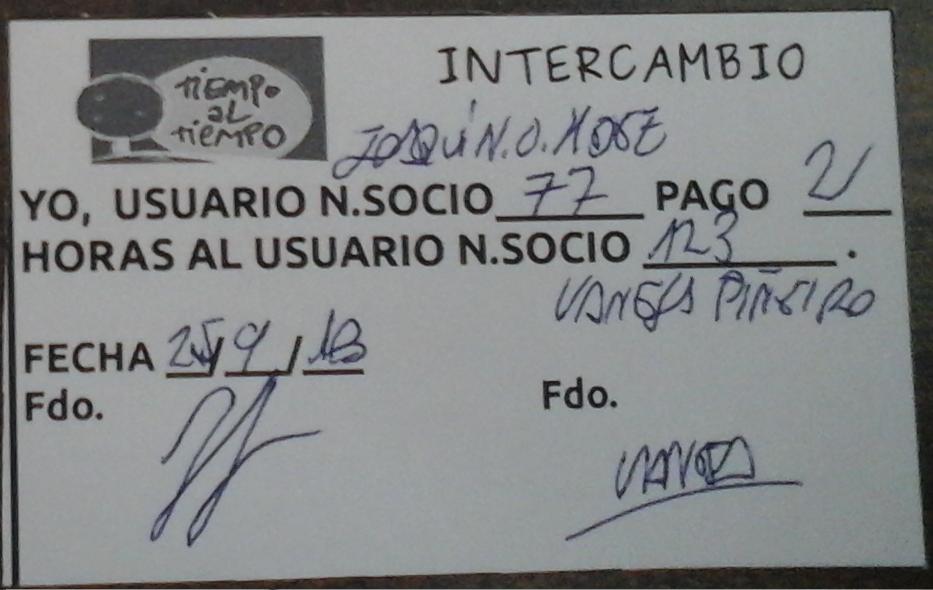 INTERCAMBIO
tiEMPO
aL
tiEMPO
JOAQUÍN.O.
YO, USUARIO N.SOCIO 77 PAGO 2
HORAS AL USUARIO N.SOCIO 123.
VANESA PIÑEIRO
FECHA 25/9/13
Fdo.
Fdo.
VANESA